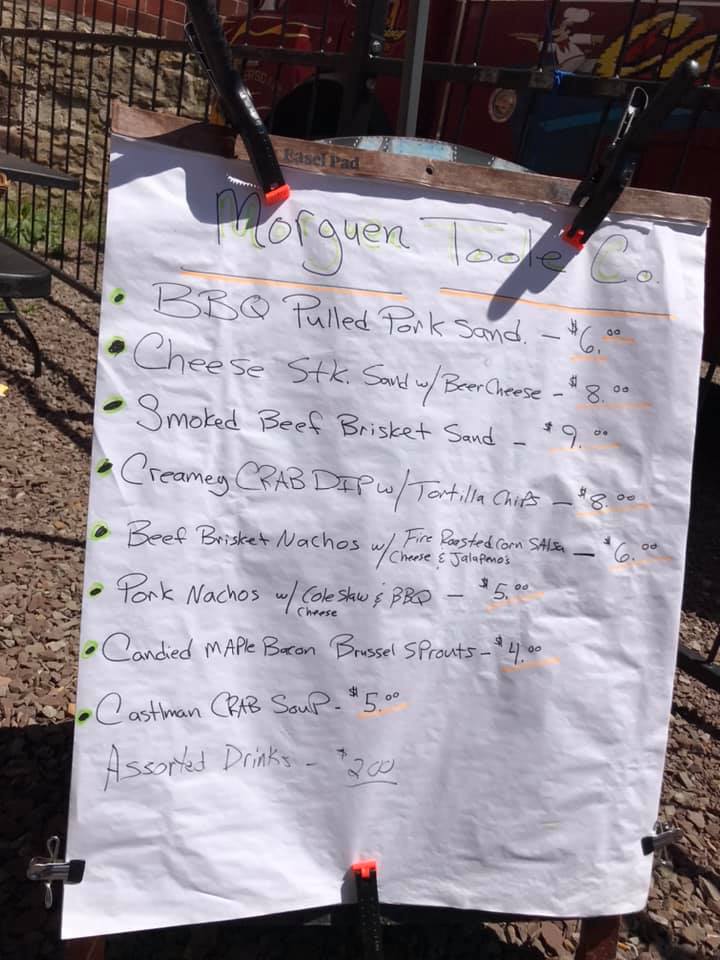 Easel Pad
Morguen Toole Co.
• BBQ Pulled Pork Sand. - $6.00
• Cheese Stk. Sand w/ Beer Cheese - $8.00
• Smoked Beef Brisket Sand - $9.00
• Creamey CRAB DIP w/ Tortilla Chips - $8.00
• Beef Brisket Nachos w/ Fire Roasted Corn SAlsa - $6.00
Cheese & Jalapeno's
• Pork Nachos w/ Cole Slaw & BBQ - $5.00
Cheese
• Candied MAPle Bacon Brussel SProuts - $4.00
• Castlman CRAB SouP - $5.00
Assorted Drinks - $200